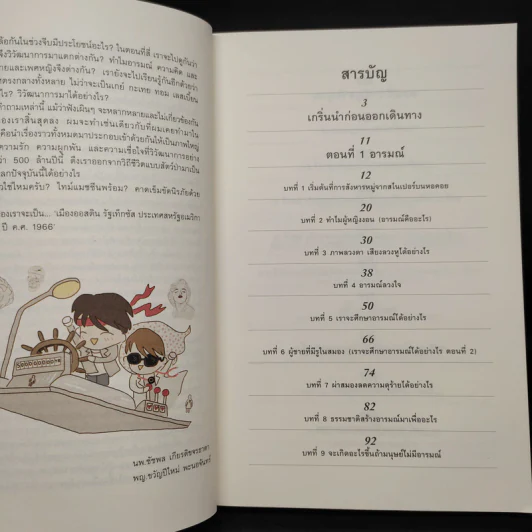 ลือกันในช่วงจีบมีประโยชน์อะไร? ในตอนที่สี่ เราจะไปดูกันว่า
จึงวิวัฒนาการมาแตกต่างกัน? ทำไมอารมณ์ ความคิด และ
ายและเพศหญิงจึงต่างกัน? เรายังจะไปเรียนรู้กันอีกด้วยว่า
ตรงกลางทั้งหลาย ไม่ว่าจะเป็นเกย์ กะเทย ทอม เลสเบี้ยน
ไร? วิวัฒนาการมาได้อย่างไร?
ำถามเหล่านี้ แม้ว่าฟังเผินๆ จะหลากหลายและไม่เกี่ยวข้องกัน
องเราสิ้นสุดลง ผมจะทำเช่นเดียวกับที่ผมเคยทำมาใน
คือนำเรื่องราวทั้งหมดมาประกอบเข้าด้วยกันให้เป็นภาพใหญ่
ความรัก ความผูกพัน และความเชื่อใจที่วิวัฒนาการอย่าง
ว่า 500 ล้านปีนี้ ดึงเราออกจากวิถีชีวิตแบบสัตว์ป่ามาเป็น
ลกปัจจุบันนี้ได้อย่างไร
วใช่ไหมครับ? ไทม์แมชชีนพร้อม? คาดเข็มขัดนิรภัยด้วย
องเราจะเป็น... 'เมืองออสติน รัฐเท็กซัส ประเทศสหรัฐอเมริกา
ปี ค.ศ. 1966'
นพ.ชัชพล เกียรติขจรธาดา
พญ.ขวัญปีใหม่ พะนอจันทร์
สารบัญ
3
เกริ่นนำก่อนออกเดินทาง
11
ตอนที่ 1 อารมณ์
12
บทที่ 1 เริ่มต้นที่การสังหารหมู่จากสไนเปอร์บนหอคอย
20
บทที่ 2 ทำไมผู้หญิงงอน (อารมณ์คืออะไร)
30
บทที่ 3 ภาพลวงตา เสียงลวงหูได้อย่างไร
38
บทที่ 4 อารมณ์ลวงใจ
50
บทที่ 5 เราจะศึกษาอารมณ์ได้อย่างไร
66
บทที่ 6 ผู้ชายที่มีรูในสมอง (เราจะศึกษาอารมณ์ได้อย่างไร ตอนที่ 2)
74
บทที่ 7 ผ่าสมองลดความดุร้ายได้อย่างไร
82
บทที่ 8 ธรรมชาติสร้างอารมณ์มาเพื่ออะไร
92
บทที่ 9 จะเกิดอะไรขึ้นถ้ามนุษย์ไม่มีอารมณ์